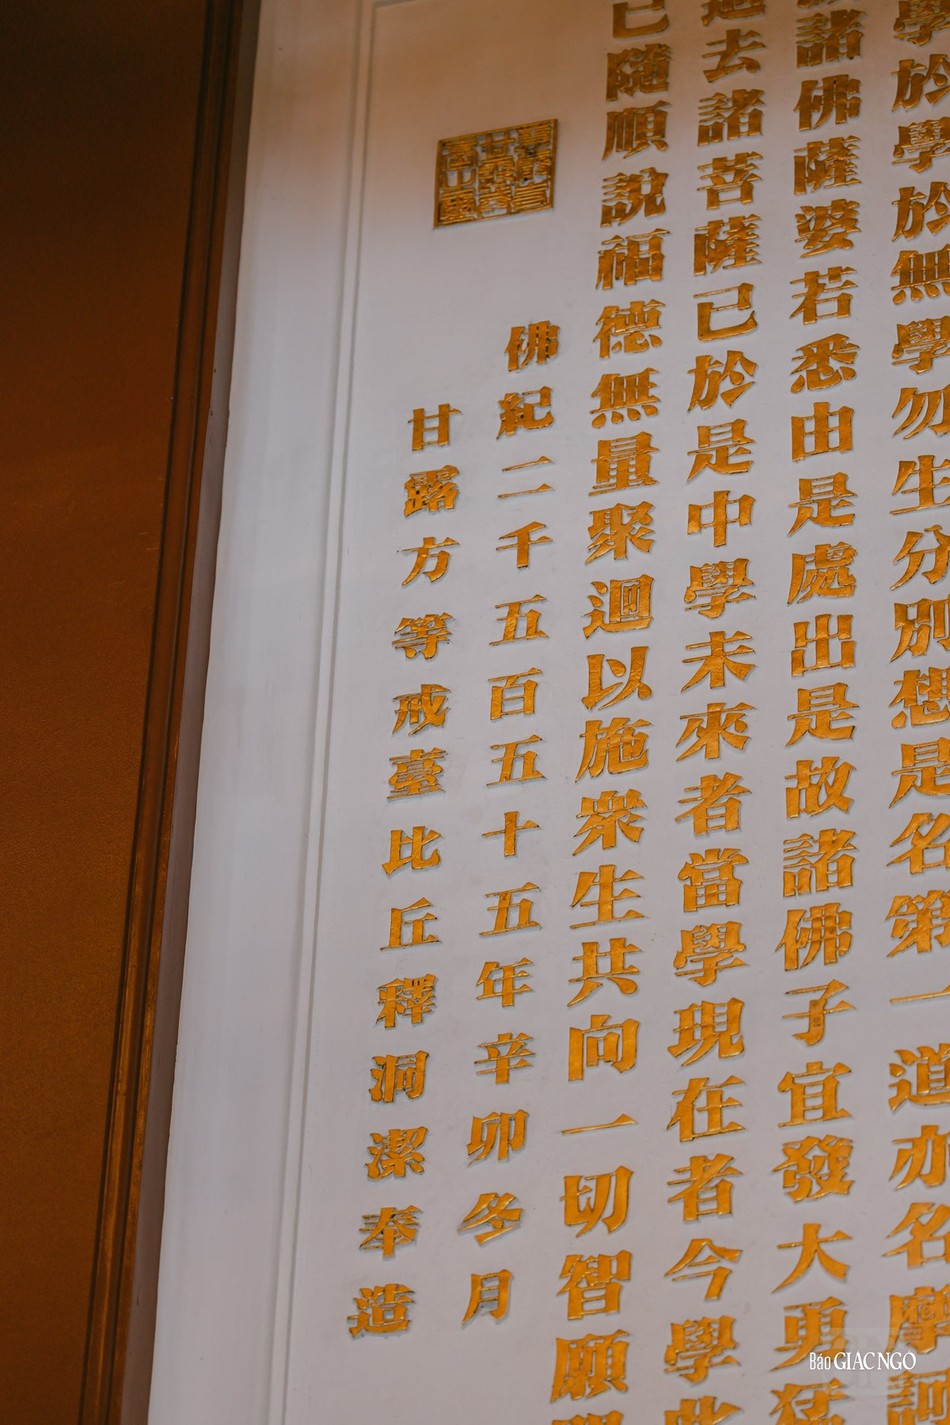 學於學於無學勿生分別想是名第一道亦名摩訶
諸佛薩婆若悉由是處出是故諸佛子宜發大勇猛
過去諸菩薩已於是中學未來者當學現在者今學此
已隨順說福德無量聚迴以施衆生共向一切智願
佛紀二千五百五十五年辛卯冬月
甘露方等戒臺比丘釋洞潔奉造
Báo GIÁC NGỘ